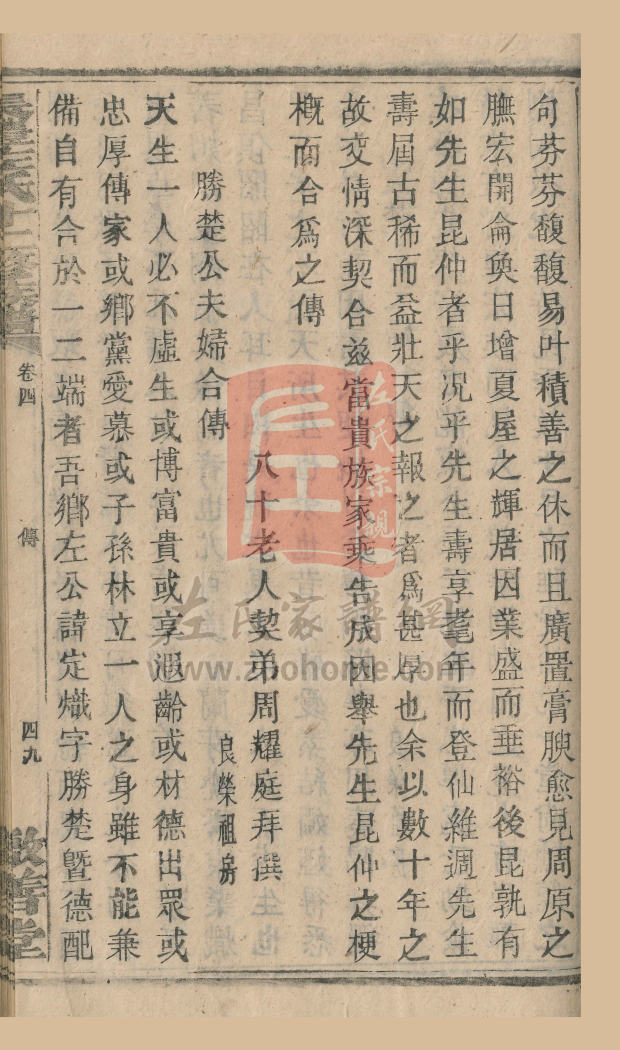 句芬芬馥馥易叶積善之休而且廣置膏腴愈見周原之
膴宏開侖奐日增夏屋之輝居因業盛而垂裕後昆孰有
如先生昆仲者乎况乎先生壽享耄年而登仙維週先生
壽屆古稀而益壯天之報之者爲甚厚也余以數十年之
故交情深契合兹當貴族家乘告成因舉先生昆仲之梗
槪而合爲之傳
八十老人契弟周耀庭拜撰
勝楚公夫婦合傳
良榮祖房
天生一人必不虛生或博富貴或享遐齡或材德出眾或
忠厚傳家或鄉黨愛慕或子孫林立一人之身雖不能兼
備自有合於一二端者吾鄉左公諱定熾字勝楚暨德配
卷四
傳
四九
左氏宗親
左氏家譜網
www.zuohome.com